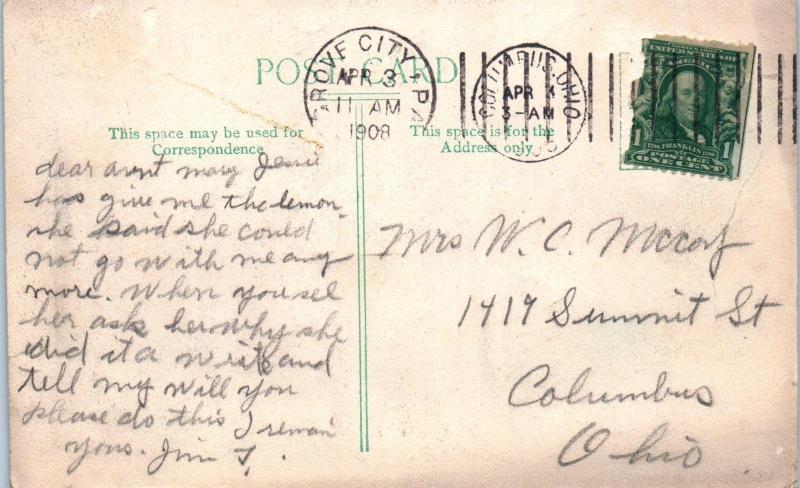 POST CARD
GROVE CITY, PA
APR 3
11 AM
1908
COLUMBUS, OHIO
APR 4
3-AM
SERIES 1902
UNITED STATES OF
AMERICA
1790 FRANKLIN 1790
POSTAGE
1 ONE CENT 1
This space may be used for
Correspondence
This space is for the
Address only
dear arnt mary Jessie
has give me the lemon
she said she could
not go with me any
more. When you see
her ask her why she
did it a write and
tell my will you
please do this I remain
yons. Jim T.
Mrs W. C. McCoy
1419 Summit St
Columbus
Ohio